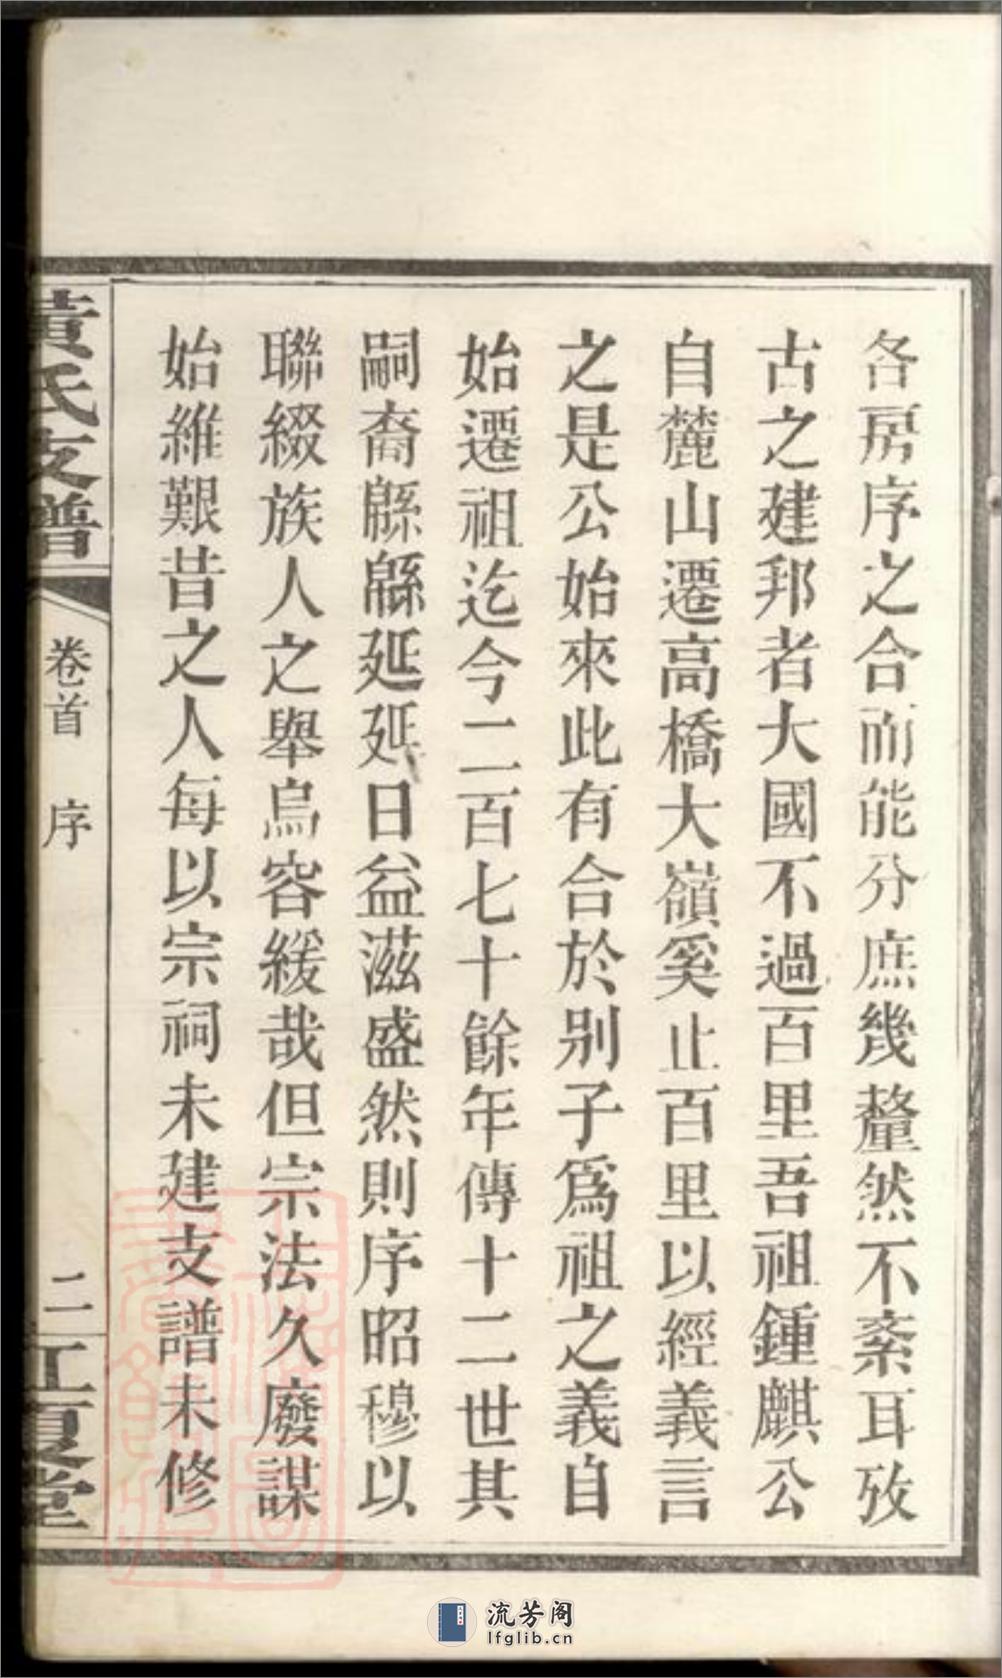 各房序之合而能分庶幾釐然不紊耳攷
古之建邦者大國不過百里吾祖鍾麒公
自麓山遷高橋大嶺奚止百里以經義言
之是公始來此有合於别子爲祖之義自
始遷祖迄今二百七十餘年傳十二世其
嗣裔緜緜延延日益滋盛然則序昭穆以
聯綴族人之舉烏容緩哉但宗法久廢謀
始維艱昔之人每以宗祠未建支譜未修
黃氏支譜
卷首 序
二
江夏堂
流芳阁
lfglib.cn